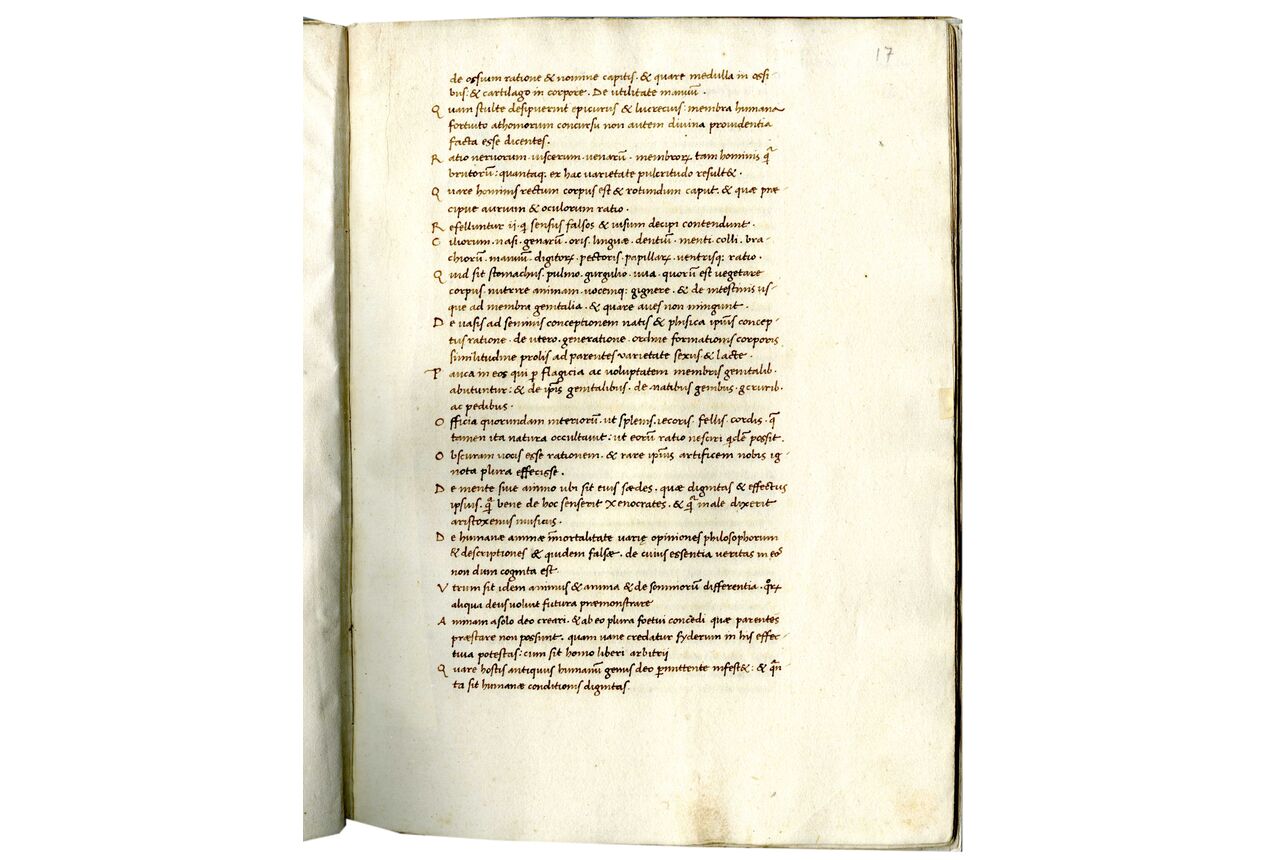 17
de ossium ratione & nomine capitis. & quare medulla in ossi-
bus: & cartilago in corpore. De utilitate manuū.
Quam stulte desipuerint epicurus & lucrecius: membra humana
fortuito athomorum concursu non autem divina providentia
facta esse dicentes.
Ratio nervorum. viscerum. venarū. membrorꝝ tam hominis
brutorū: quantaq; ex hac varietate pulcritudo result&.
Quare hominis rectum corpus est & rotundum caput. & quae prae-
cipue aurium & oculorum ratio.
Refelluntur ii. qi sensus falsos & visum decipi contendunt.
Ciliorum. nasi. genarū. oris. linguae. dentiū. menti. colli. bra-
chiorū. manuū. digitorꝝ. pectoris. papillarꝝ. ventrisq; ratio.
Quid sit stomachus. pulmo. gurgulio. uva. quorū est vegetare
corpus. nutrire animam. vocemq; gignere. & de intestinis us-
que ad membra genitalia. & quare aves non mingunt.
De vasis ad seminis conceptionem natis & phisica ipīus concep-
tus ratione. de utero. generatione. ordine formationis corporis
similitudine prolis ad parentes varietate sexus. & lacte.
Pauca in eos qui ꝑ flagicia ac voluptatem membris genitalib.
abutuntur: & de ipīs genitalibus. de natibus genibus. cruribꝰ.
ac pedibus.
Officia quorundam interiorū. ut splenis. iecoris. fellis. cordis. q̄
tamen ita natura occultavit: ut eorū ratio nesciri qidē possit.
Obscuram vocis esse rationem. & rare ipīus artificem nobis ig-
nota plura effecisse.
De mente sive animo ubi sit eius saedes. quae dignitas & effectus
ipsius. bene de hoc senserit Xenocrates. & male dixerit
aristoxenus musicus.
De humanae animae īmortalitate varię opiniones philosophorum
& descriptiones & quidem falsae. de cuius essentia veritas in eos
non dum cognita est.
Utrum sit idem animus & anima & de somniorū differentia.
aliqua deus voluit futura praemonstrare
Animam a solo deo creari. & ab eo plura foetui concedi quae parentes
praestare non possunt. quam vane credatur syderum in his effec-
tiva potestas: cum sit homo liberi arbitrii
Quare hostis antiquus humanū genus deo ꝑmittente infest&: & qān-
ta sit humanae conditionis dignitas.